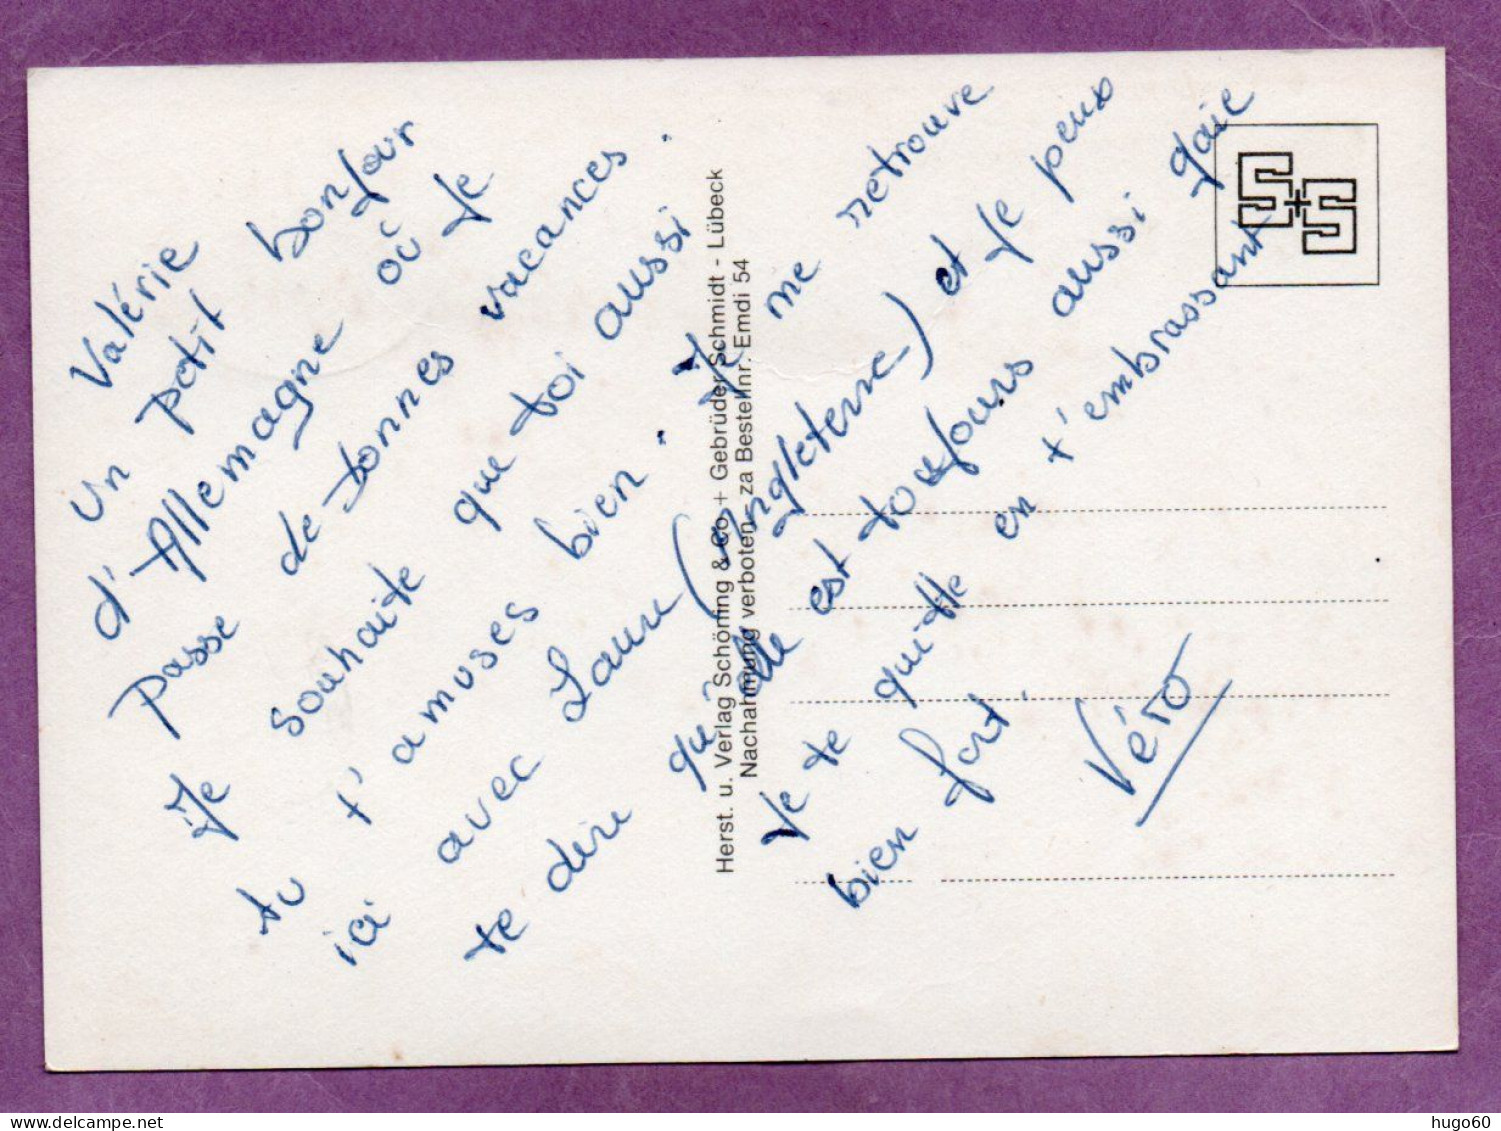 Valérie
Un petit bonjour
d'Allemagne où je
passe de bonnes vacances.
Je souhaite que toi aussi
tu t'amuses bien. Je me retrouve
ici avec Laure (Angleterre) et je peux
te dire qu'elle est toujours aussi gaie
Je te quitte en t'embrassant
bien fort.
Véro
Herst. u. Verlag Schöning & Co + Gebrüder Schmidt - Lübeck
Nachahmung verboten, za Bestellnr. Emdi 54
S+S
hugo60